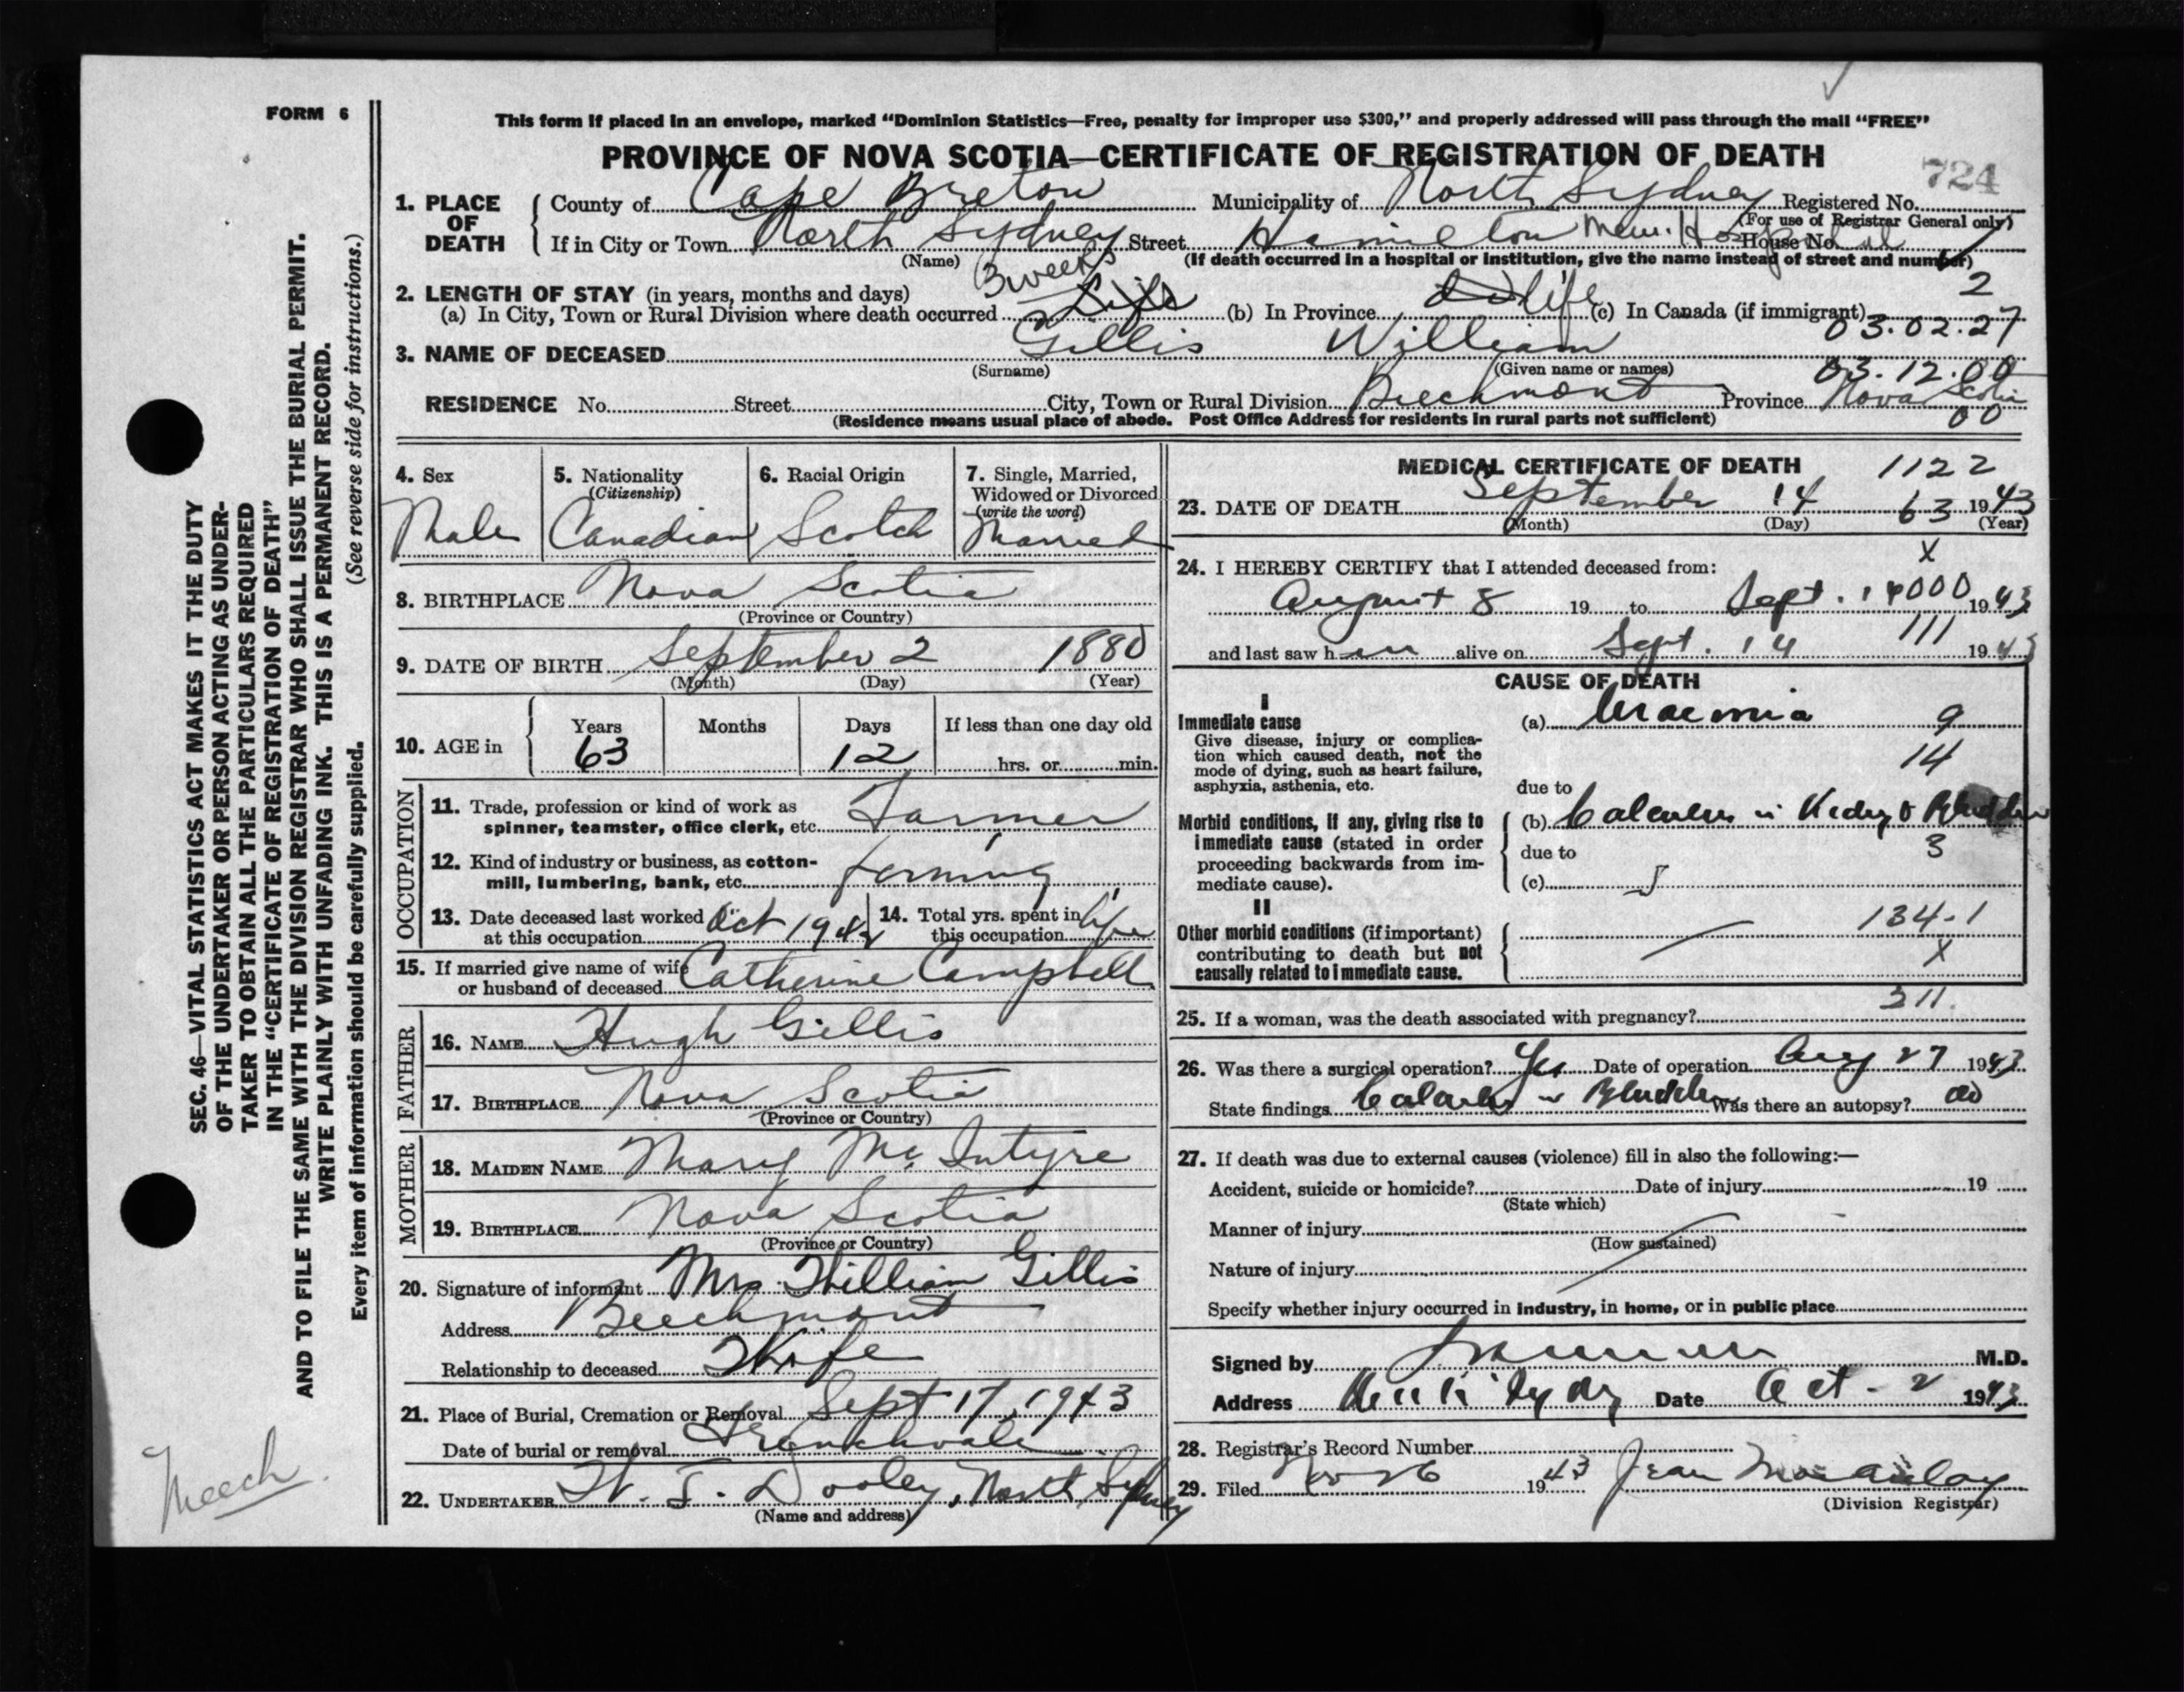 FORM 6
This form if placed in an envelope, marked "Dominion Statistics—Free, penalty for improper use $300," and properly addressed will pass through the mail "FREE"
PROVINCE OF NOVA SCOTIA—CERTIFICATE OF REGISTRATION OF DEATH
724
1. PLACE OF DEATH County of Cape Breton Municipality of North Sydney Registered No.
(For use of Registrar General only)
If in City or Town North Sydney Street Hamilton Mem. Hospital House No.
(Name) (If death occurred in a hospital or institution, give the name instead of street and number)
2. LENGTH OF STAY (in years, months and days) 3 weeks 2
(a) In City, Town or Rural Division where death occurred Life (b) In Province life (c) In Canada (if immigrant)
03.02.27
3. NAME OF DECEASED Gillis William
(Surname) (Given name or names) 03.12.00
RESIDENCE No. Street City, Town or Rural Division Beechmont Province Nova Scotia
(Residence means usual place of abode. Post Office Address for residents in rural parts not sufficient) 00
4. Sex Male
5. Nationality (Citizenship) Canadian
6. Racial Origin Scotch
7. Single, Married, Widowed or Divorced (write the word) Married
8. BIRTHPLACE Nova Scotia
(Province or Country)
9. DATE OF BIRTH September 2 1880
(Month) (Day) (Year)
10. AGE in Years 63 Months Days 12 If less than one day old hrs. or min.
OCCUPATION
11. Trade, profession or kind of work as spinner, teamster, office clerk, etc. Farmer
12. Kind of industry or business, as cotton-mill, lumbering, bank, etc. farming
13. Date deceased last worked at this occupation Oct 1942
14. Total yrs. spent in this occupation life
15. If married give name of wife or husband of deceased Catherine Campbell
FATHER
16. NAME Hugh Gillis
17. BIRTHPLACE Nova Scotia
(Province or Country)
MOTHER
18. MAIDEN NAME Mary McIntyre
19. BIRTHPLACE Nova Scotia
(Province or Country)
20. Signature of informant Mrs William Gillis
Address Beechmont
Relationship to deceased Wife
21. Place of Burial, Cremation or Removal Sept 17, 1943
Date of burial or removal Frenchvale
22. UNDERTAKER W. J. Dooley, North Sydney
(Name and address)
MEDICAL CERTIFICATE OF DEATH 1122
23. DATE OF DEATH September 14 63 1943
(Month) (Day) (Year)
X
24. I HEREBY CERTIFY that I attended deceased from:
August 8 19 to Sept. 14 000 1943
and last saw him alive on Sept. 14 111 1943
CAUSE OF DEATH
I
Immediate cause (a) Uraemia 9
Give disease, injury or complication which caused death, not the mode of dying, such as heart failure, asphyxia, asthenia, etc.
14
due to
Morbid conditions, if any, giving rise to immediate cause (stated in order proceeding backwards from immediate cause).
(b) Calculus in Kidney & Bladder
due to 3
(c)
II
Other morbid conditions (if important) contributing to death but not causally related to immediate cause.
134-1
X
311.
25. If a woman, was the death associated with pregnancy?
26. Was there a surgical operation? Yes Date of operation Aug 27 1943
State findings Calculus in Bladder Was there an autopsy? no
27. If death was due to external causes (violence) fill in also the following:—
Accident, suicide or homicide? Date of injury 19
(State which)
Manner of injury
(How sustained)
Nature of injury
Specify whether injury occurred in industry, in home, or in public place
Signed by M.D.
Address Date Oct - 2 1943
28. Registrar's Record Number
29. Filed Nov 26 1943 Jean MacAulay
(Division Registrar)
SEC. 46—VITAL STATISTICS ACT MAKES IT THE DUTY
OF THE UNDERTAKER OR PERSON ACTING AS UNDER-
TAKER TO OBTAIN ALL THE PARTICULARS REQUIRED
IN THE "CERTIFICATE OF REGISTRATION OF DEATH"
AND TO FILE THE SAME WITH THE DIVISION REGISTRAR WHO SHALL ISSUE THE BURIAL PERMIT.
WRITE PLAINLY WITH UNFADING INK. THIS IS A PERMANENT RECORD.
Every item of information should be carefully supplied. (See reverse side for instructions.)
Meech